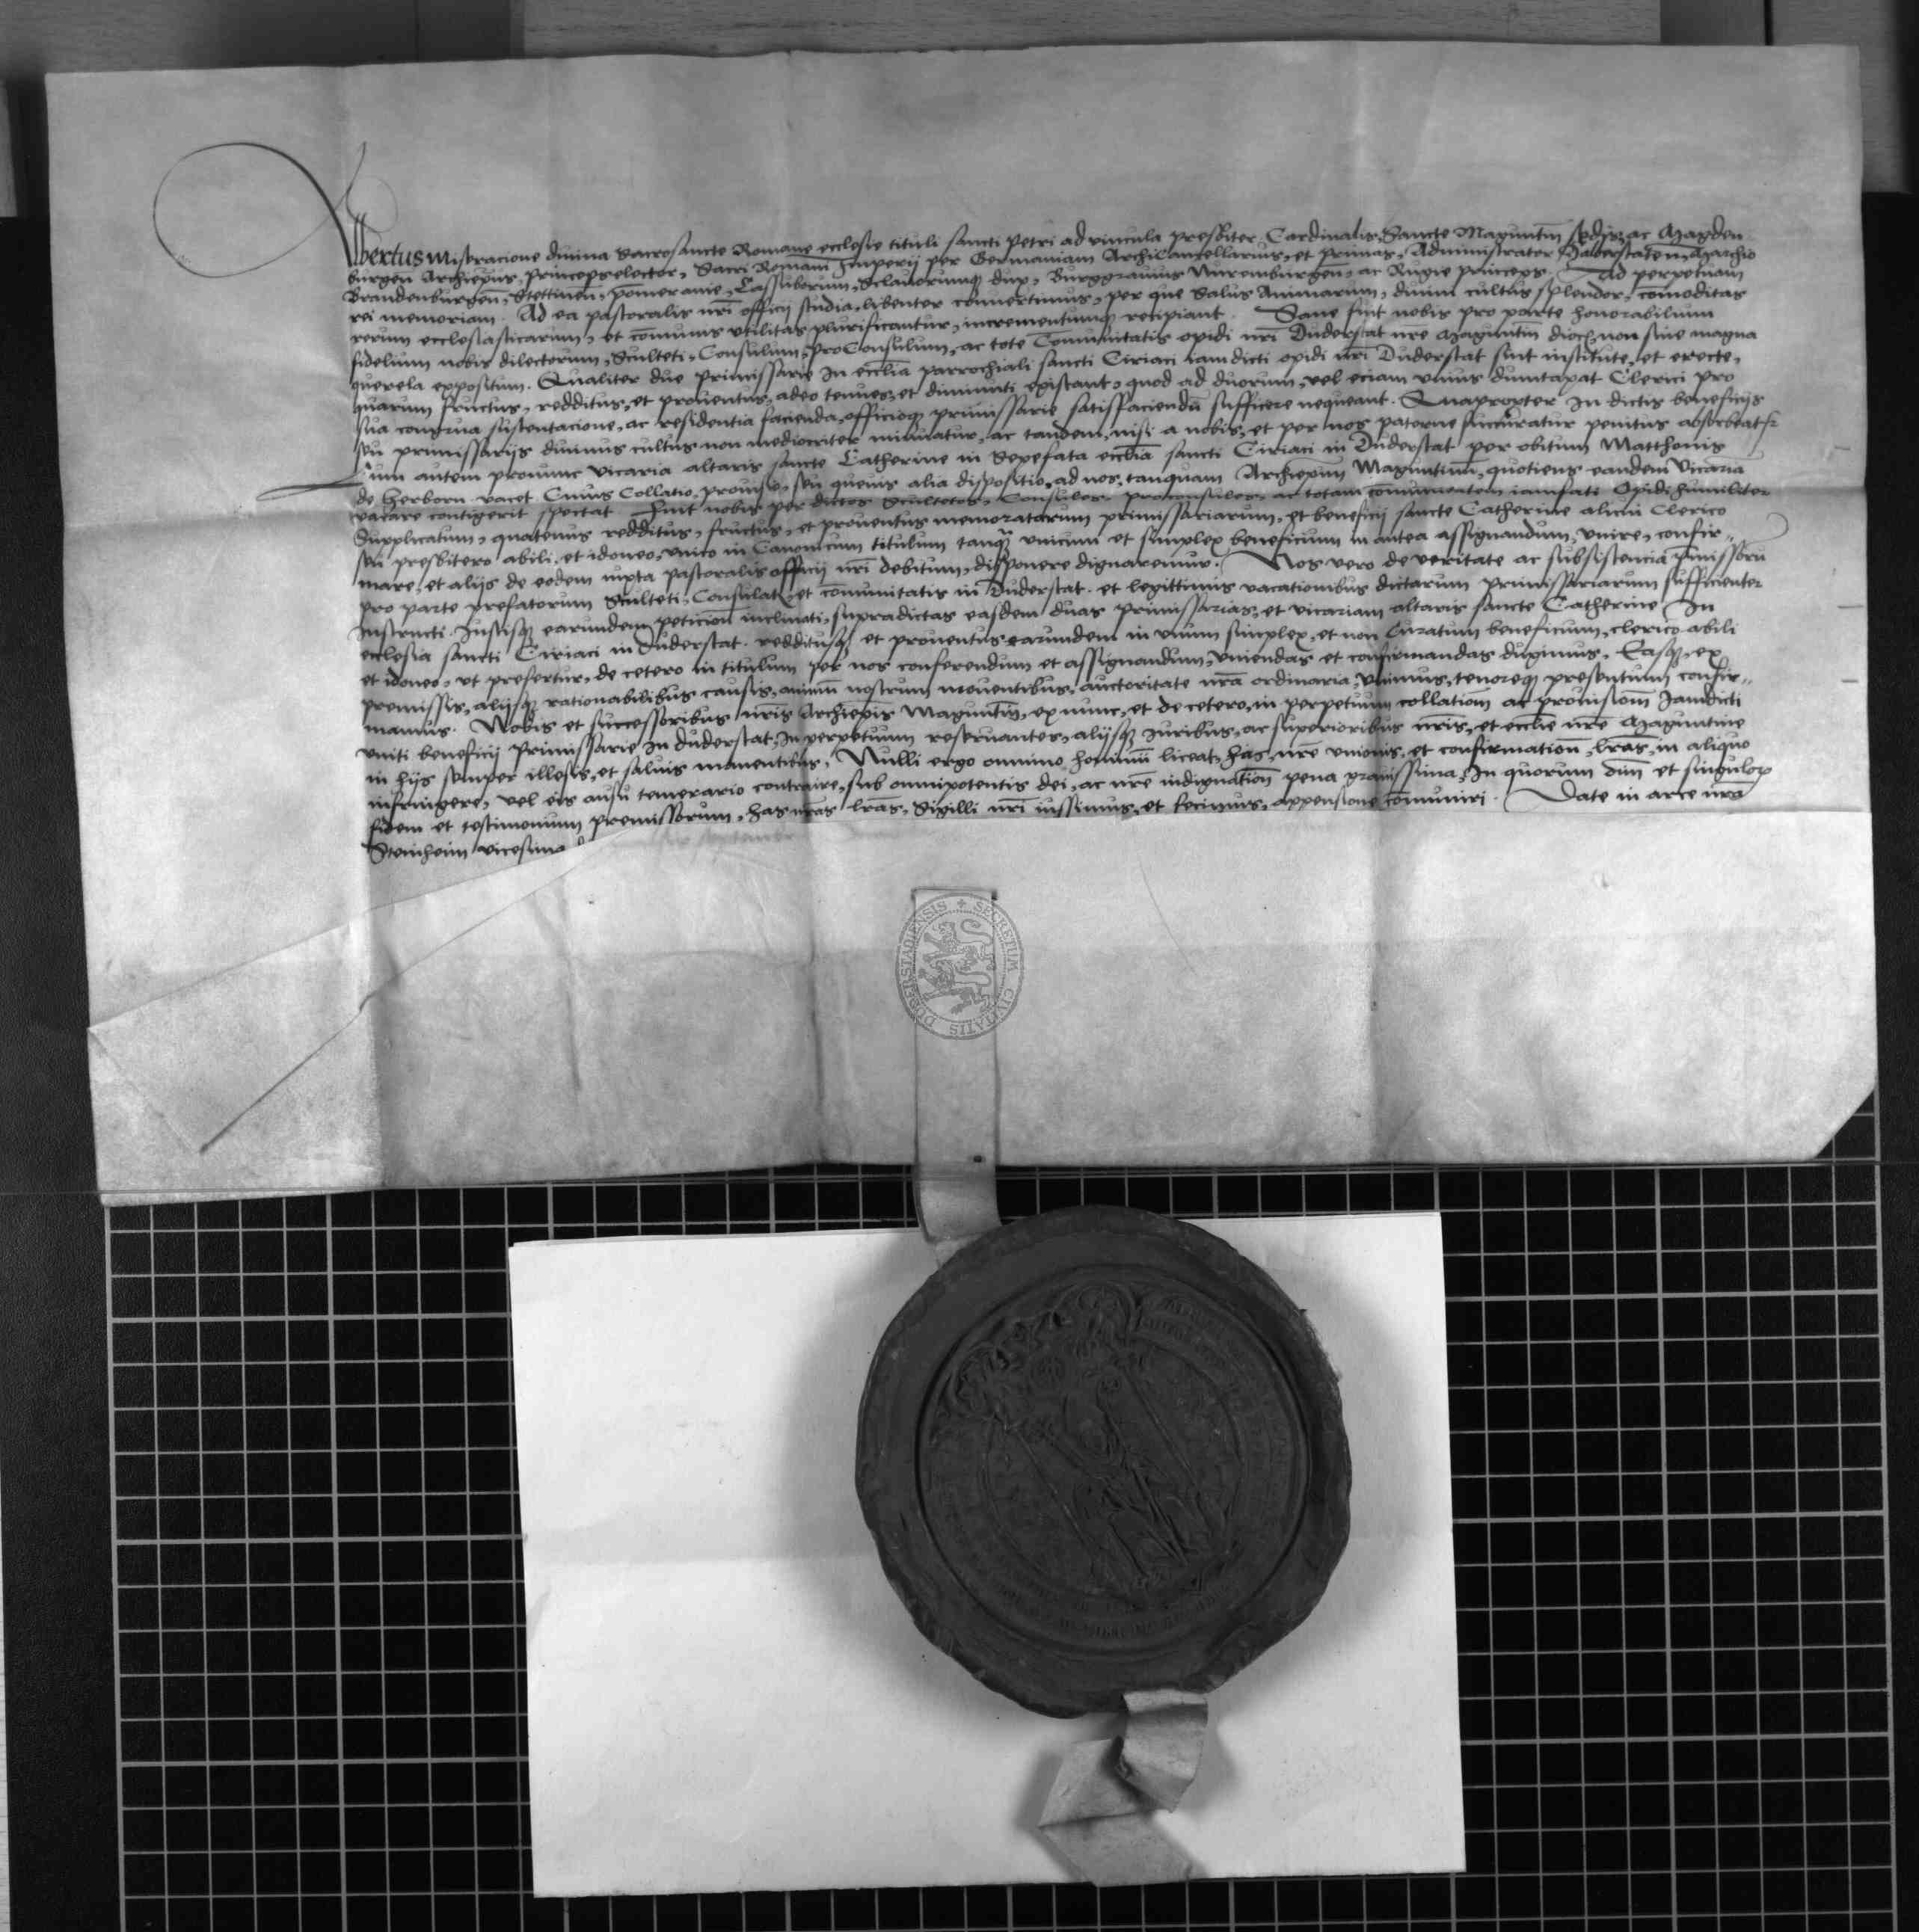 Albertus Misẽracione divina Sacrosancte Romane ecclesie tituli sancti Petri ad vincula presbiter Cardinalis, Sancte Maguntiñ sedis, ac Magden
burgeñ Archiepũs, princeps elector, Sacri Romani Imperij per Germaniam ArchiCancellarius, et primas, Administrator Halberstateñ, Marchio
Brandenburgeñ, Stettineñ, pomeranie, Cassuborum, Sclavorumqȝ dux, Burggravius Nurembergeñ, ac Rugie princeps. Ad perpetuam
rei memoriam. Ad ea pastoralis nr̃i officij studia libenter convertimus, per que Salus Animarum, divini cultus splendor, com̃oditas
rerum ecclesiasticarum, et com̃unis utilitas plurificantur, incrementumqȝ recipiant. Sane fuit nobis pro parte honorabilium
fidelium nobis dilectorum, Sculteti, Consulum, ProConsulum, ac tote Com̃unitatis opidi nr̃i Duderstat nr̃e Maguntiñ dioc̃ non sine magna
querela expositum. Qualiter due primissarie in eccl̃ia parrochiali sancti Ciriaci iamdicti opidi nr̃i Duderstat sint institute, et erecte,
quarum fructus, redditus, et proventus, adeo tenues, et diminuti existant, quod ad duorum, vel eciam unius dumtaxat Clerici pro
sua congrua sustentacione, ac residentia facienda, officioqȝ primissarie satisfaciendũ sufficere nequeant. Quapropter in dictis beneficijs
seu primissarijs divinus cultus non mediocriter minuatur, ac tandem, nisi a nobis, et per nos paterne succuratur penitus absorbeatʳ
Cum autem pronunc vicaria altaris sancte Catherine in Sepefata eccl̃ia sancti Ciriaci in Duderstat per obitum Matthonis
de Herborn vacet. Cuius Collatio, provisio, seu quevis alia dispositio, ad nos, tanquam Archiep̃um Maguntinũ, quotiens eandem vicariã
vacare contigerit spectat. Fuit nobis per dictos Scultetos, Consules, proconsules, ac totam com̃unitatem iamfati Opidi humiliter
Supplicatum, quatenus redditus, fructus, et proventus memoratarum primissariarum, et beneficij sancte Catherine alicui Clerico
seu presbitero abili, et idoneo, unico in Canonicum titulum tanq̃ unicum et simplex beneficium in antea assignandum, unire, confir„
mare, et alijs de eodem iuxta pastoralis officij nr̃i debitum, disponere dignaremur. Nos vero de veritate ac subsistencia p̃missorũ
pro parte prefatorum Sculteti, Consulatꝰ et com̃unitatis in Duderstat. et legittimis vacationibus dictarum primissariarum sufficienter
Instructi. Iustisqȝ earundem peticioñ inclinati, supradictas easdem duas primissarias, et vicariam altaris sancte Catherine In
ecclesia sancti Ciriaci in Duderstat. redditusqȝ et proventus earundem in unum simplex, et non Curatum beneficium, clerico abili
et idoneo, ut prefertur, de cetero in titulum per nos conferendum et assignandum, uniendas et confirmandas duximus. Easqȝ, ex
premissis, alijsqȝ rationabilibus causis, animũ nostrum moventibus, auctoritate nr̃a ordinaria, Unimus, tenoreqȝ presentium confir„
mamus. Nobis et successoribus nr̃is Archiep̃is Maguntiñ, ex nunc, et de cetero, in perpetuum collatioñ ac provisioñ Iamdicti
uniti beneficij Primissarie In duderstat, In perpetuum reservantes, alijsqȝ Iuribus, ac superioribus nr̃is, et eccl̃ie nr̃e Maguntine
in hijs semper illesis, et salvis manentibus. Nulli ergo omnino hominũ liceat, has nr̃e unionis, et confirmatioñ, lr̃as, in aliquo
infringere, vel eis ausu temerario contraire, sub omnipotentis dei, ac nr̃e indignatioñ pena gravissima. In quorum oĩm et singuloꝝ
fidem et testimonium premissorum, has nr̃as lr̃as, Sigilli nr̃i iussimus, et fecimus, appensione com̃uniri. Date in arce nr̃a
Steinheim vicesima
SECRETUM CIVITATIS DUDERSTADIENSIS